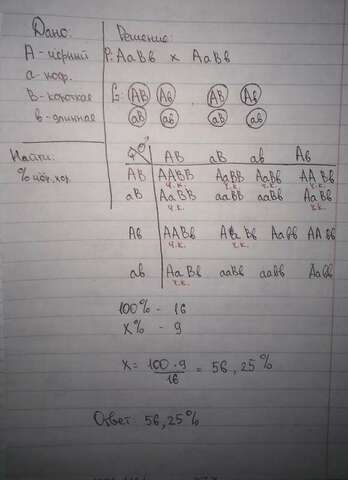 Дано:
А - чёрный
а - коф.
В - короткая
в - длинная
Найти:
% чёр. кор.
Решение:
P: АаВв х АаВв
G: АВ Ав , АВ Ав
аВ ав аВ ав
♀ ♂ АВ аВ ав Ав
АВ ААВВ АаВВ АаВв ААВв
ч.к. ч.к. ч.к. ч.к.
аВ АаВВ ааВВ ааВв АаВв
ч.к. ч.к.
Ав ААВв АаВв Аавв ААвв
ч.к. ч.к.
ав АаВв ааВв аавв Аавв
ч.к.
100% - 16
х% - 9
х = 100 · 9 / 16 = 56,25%
Ответ: 56,25%